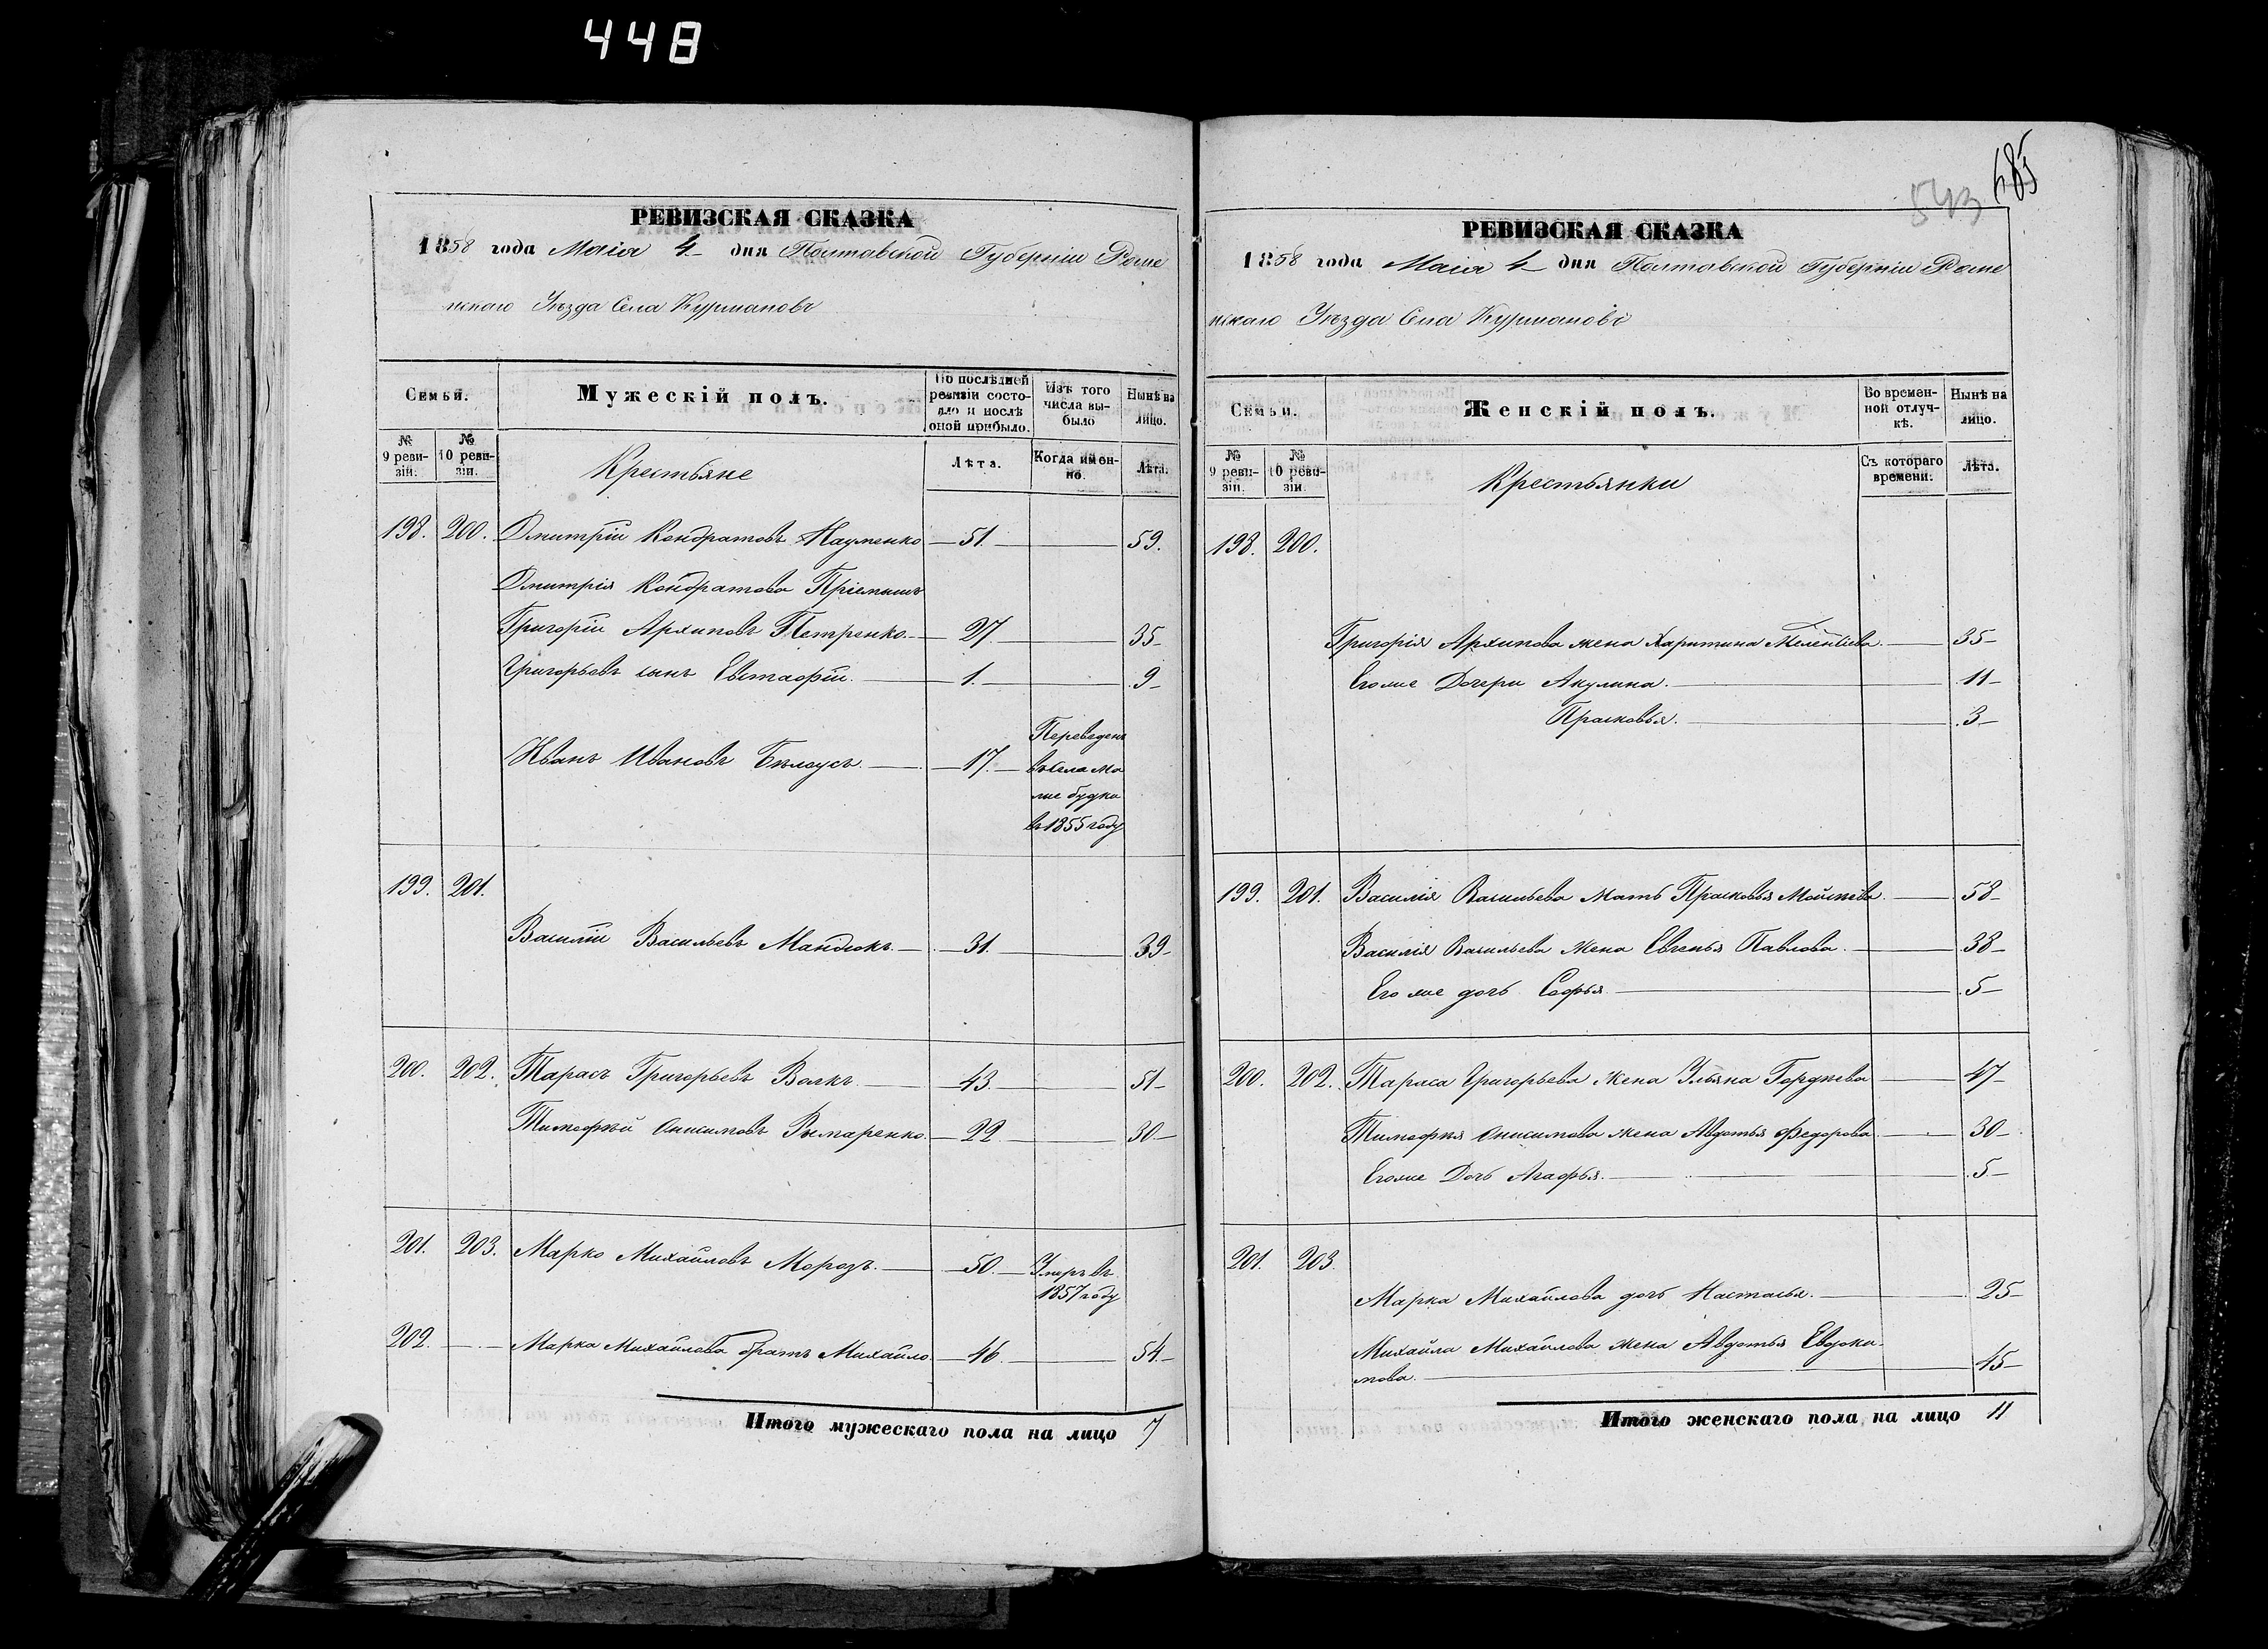 448
РЕВИЗСКАЯ СКАЗКА
1858 года Маія 4 дня Полтавской Губерніи Роме
нскаго Уѣзда Села Курмановъ
Семьи.
Мужескій полъ.
По послѣдней ревизіи состояло и послѣ оной прибыло.
Изъ того числа выбыло
Нынѣ на лицо.
№ 9 ревизіи.
№ 10 ревизіи.
Крестьяне
Лѣта.
Когда именно.
Лѣта.
198. 200. Дмитрій Кондратовъ Науменко 51. 59.
Дмитрія Кондратова Пріемышъ
Григорій Архиповъ Петренко 27. 35
Григорьевъ сынъ Евстафій. 1. 9
Иванъ Ивановъ Бѣлоусъ. 17.
Переведенъ
въ села Ма
лые будки
въ 1855 году
199. 201.
Василій Васильевъ Мандюкъ. 31. 39
200. 202. Тарасъ Григорьевъ Волкъ. 43. 51
Тимофѣй Онисимовъ Рымаренко. 22 30
201. 203. Марко Михайловъ Морозъ. 50. Умеръ въ
1857 году
202. Марка Михайлова братъ Михайло 46. 54
Итого мужескаго пола на лицо 7
685
543
РЕВИЗСКАЯ СКАЗКА
1858 года Маія 4 дня Полтавской Губерніи Роме
нскаго Уѣзда Села Курмановъ
Семьи.
Женскій полъ.
Во временной отлучкѣ.
Нынѣ на лицо.
№ 9 ревизіи.
№ 10 ревизіи.
Крестьянки
Съ котораго времени.
Лѣта.
198. 200.
Григорія Архипова жена Харитина Мелентіева. 35
Егоже Дочери Акулина. 11
Прасковья. 3
199. 201. Василія Васильева Мать Прасковья Мойсѣева 58
Василія Васильева Жена Евгенья Павлова. 38
Его же дочь Софья. 5
200. 202. Тараса Григорьева Жена Ульяна Гордѣева 47
Тимофѣя Онисимова жена Авдотья Федорова 30
Егоже Дочь Агафья. 5
201. 203.
Марка Михайлова дочь Настасья. 25
Михайла Михайлова жена Авдотья Евдоки-
мова. 45
Итого женскаго пола на лицо 11